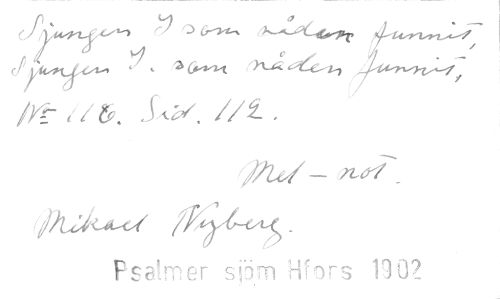 Sjungen I som nåden funnit,
Sjungen I. som nåden funnit,
No 118. Sid. 112.
Mel – not.
Mikael Nyberg.
Psalmer sjöm Hfors 1902